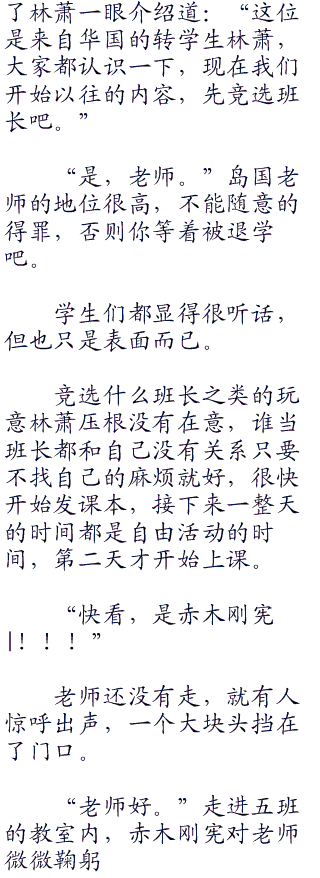 了林萧一眼介绍道：“这位
是来自华国的转学生林萧，
大家都认识一下，现在我们
开始以往的内容，先竞选班
长吧。”
“是，老师。”岛国老
师的地位很高，不能随意的
得罪，否则你等着被退学
吧。
学生们都显得很听话，
但也只是表面而已。
竞选什么班长之类的玩
意林萧压根没有在意，谁当
班长都和自己没有关系只要
不找自己的麻烦就好，很快
开始发课本，接下来一整天
的时间都是自由活动的时
间，第二天才开始上课。
“快看，是赤木刚宪
|！！！”
老师还没有走，就有人
惊呼出声，一个大块头挡在
了门口。
“老师好。”走进五班
的教室内，赤木刚宪对老师
微微鞠躬